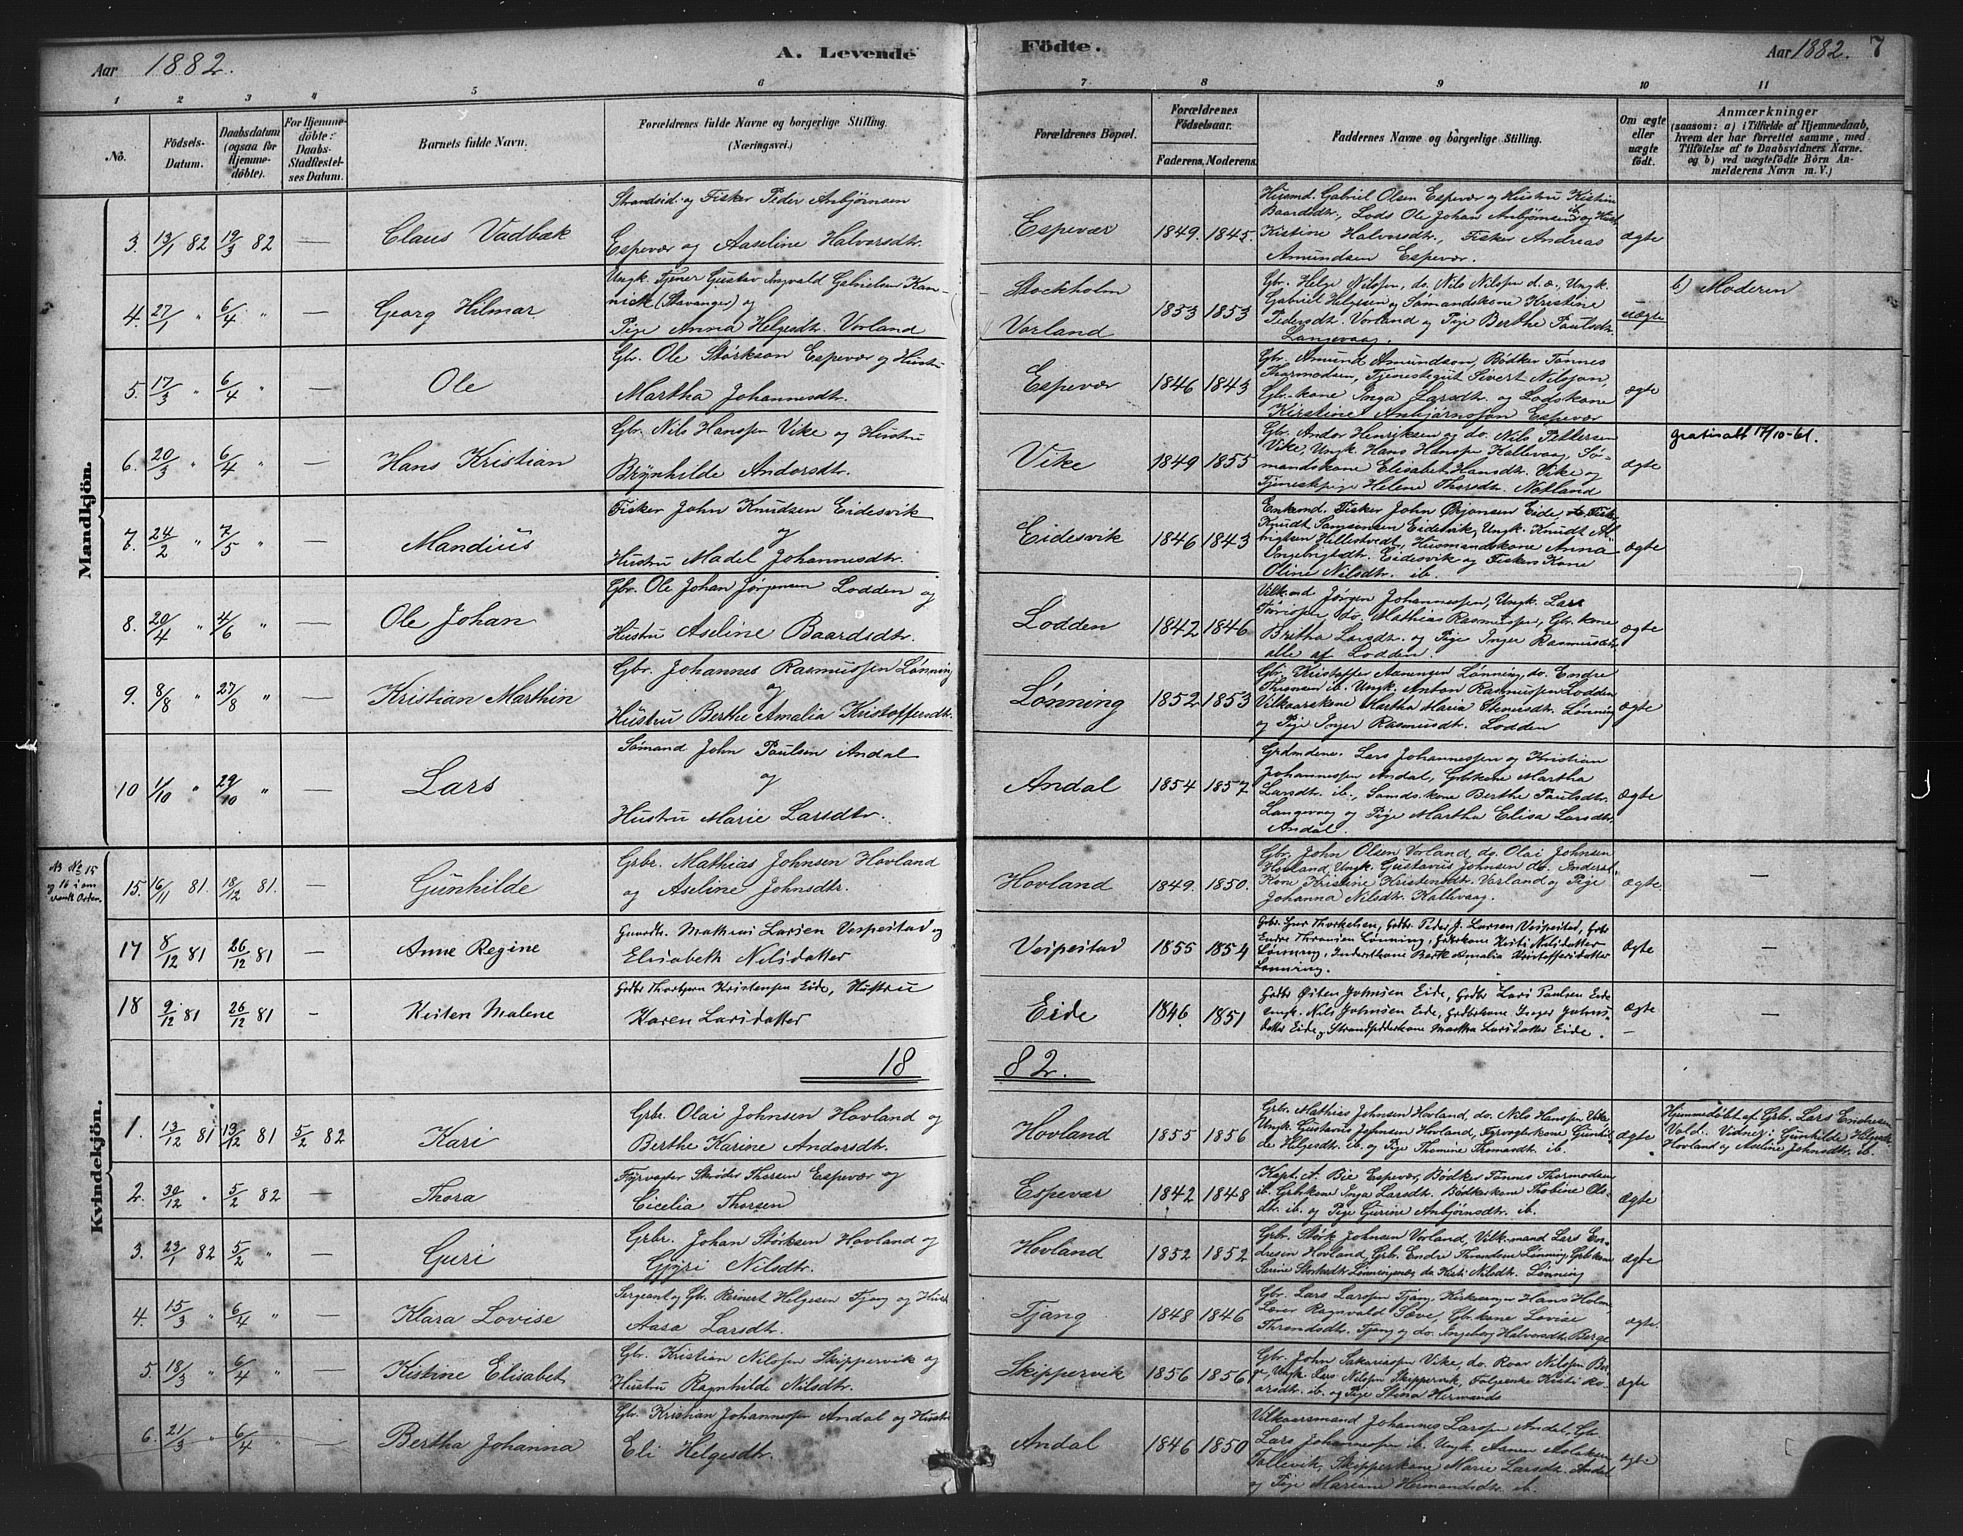 Aar 1882. A. Levende Födte. Aar 1882. 7
1 2 3 4 5 6 7 8 9 10 11
No. Födsels-Datum. Daabsdatum (ogsaa for Hjemmedöbte). For Hjemmedöbte: Daabs-Stadfæstelses Datum. Barnets fulde Navn. Forældrenes fulde Navne og borgerlige Stilling. (Næringsvei.) Forældrenes Bopæl. Forældrenes Födselsaar. Faderens. Moderens. Faddernes Navne og borgerlige Stilling. Om ægte eller uægte födt. Anmærkninger (saasom: a) i Tilfælde af Hjemmedaab, hvem der har forrettet samme, med Tilföielse af to Daabsvidners Navne. og b) ved uægtefödte Börn Anmelderens Navn m. V.)
Mandkjön.
3. 13/1 82 19/3 82 — Claus Vadbæk
Strandsid. og Fisker Peder Anbjørnsen
Espevær og Aaseline Halvorsdtr.
Espevær 1849. 1845.
Husmd. Gabriel Olsen Espevær og Hustru Kistine
Baardsdtr., Lods Ole Johan Anbjørnsen ib. og Hust.
Kistine Halvorsdtr., Fisker Andreas
Amundsen Espevær.
ægte
4. 27/1 " 6/4 " — Georg Hilmar
Ungk. Tjener Gustav Ingvald Gabrielsen Kan-
nick (Stavanger) og
Pige Anna Helgesdtr. Vorland
Stockholm
Vorland 1853 1853
Gbr. Helge Nilsen, do. Nils Nilsen d.æ., Ungk.
Gabriel Helgesen og Sømandskone Kristine
Pedersdtr. Vorland og Pige Berthe Paulsdtr.
Langevaag.
uægte b) Moderen
5. 17/3 " 6/4 " — Ole
Gbr. Ole Størksen Espevær og Hustru
Martha Johannesdtr.
Espevær 1846 1843
Gbr. Amund Amundsen, Bødker Tønnes
Thormodsen, Tjenestegut Sivert Nilsson,
Gbr.kone Inga Larsdtr. og Lodskone
Kirstine Anbjørnsen Espevær
ægte
6. 20/3 " 6/4 " — Hans Kristian
Gbr. Nils Hansen Vike og Hustru
Brynhilde Andorsdtr.
Vike 1849 1855
Gbr. Andor Henriksen og do. Nils Pettersen
Vike, Ungk. Hans Hansen Kallevaag, Sø-
mandskone Elisabet Hansdtr. Vike og
Tjenestepige Helene Thorsdtr. Notland
ægte gratisatt 17/10-61.
7. 24/2 " 7/5 " — Mandius
Fisker John Knudsen Eidesvik
og
Hustru Madel Johannesdtr.
Eidesvik 1846 1843
Enkemd. Fisker John Ørjansen Eide, do. Fisker
Knudt Samsonsen Eidesvik, Ungk. Knudt
Hellestvedt, Husmandskone Anna
Engebrigtsdtr. Eidesvik og Fiskers Kone
Oline Nilsdtr. ib.
ægte
8. 20/4 " 4/6 " — Ole Johan
Gbr. Ole Johan Jørgensen Lodden og
Hustru Aseline Baardsdtr.
Lodden 1842 1846
Vilk.md Jørgen Johannessen, Ungk. Lars
do. Mathias Rasmussen, Gbr. kone
Britha Larsdtr. og Pige Inger Rasmusdtr.
alle af Lodden.
ægte
9. 8/8 " 27/8 " — Kristian Marthin
Gbr. Johannes Rasmussen Lønning
og
Hustru Berthe Amalia Kristoffersdtr.
Lønning 1852 1853
Gbr. Kristoffer Aanensen Lønning, do. Endre
Thronsen ib. Ungk. Anton Rasmussen Lodden,
Vilkaarskone Martha Maria Stensdtr. Lønning
og Pige Inger Rasmusdtr. Lodden
ægte
10 1/10 " 29/10 " — Lars
Sømand John Paulsen Andal
og
Hustru Marie Larsdtr.
Andal 1854 1857
Grdmdene. Lars Johannessen og Kristian
Johannessen Andal, Gbkone Martha
Larsdtr. ib., Sømds.kone Berthe Paulsdtr.
Langevaag og Pige Martha Elisa Larsdtr.
Andal.
ægte
NB No 15
og 16 i om
vendt Orden.
15. 16/11 81. 18/12 81. — Gunhilde
Grbr. Mathias Johnsen Hovland
og Aseline Johnsdtr.
Hovland 1849. 1850.
Gbr. John Olsen Vorland, do. Olai Johnsen
Hovland, Ungk. Gustavus Johnsen do. Inderst.
Kone Kristine Kristensdtr. Vorland og Pige
Johanna Nilsdtr. Kallevaag.
ægte —
17 8/12 81 26/12 81 — Anne Regine
Gaardbr. Mathias Larsen Vespestad og
Elisabeth Nilsdatter
Vespestad 1855 1854
Grbr. Thorkelsen, Grdbr. Peder J. Larsen Vespestad, Grbr
Endre Thronsen Lønning, Grbrkone Kisti Nilsdatter
Lønning, Inderstkone Berte Amalia Kristoffersdatter
Lønning.
ægte —
18 9/12 81 26/12 81 - Kisten Malene
Grdbr Thorbjørn Kristensen Eide, Hustru
Karen Larsdatter
Eide 1846 1851
Grdbr Østen Johnsen Eide, Grdbr Lars Paulsen Eide
Ungk. Nils Johnsen Eide, Grdbrkone Inger Johns-
datter Eide, Strandsidderkone Martha Larsdatter Eide.
ægte —
18 82.
Kvindekjön.
1. 13/12 81 19/12 81 5/2 82 Kari
Grbr. Olai Johnsen Hovland og
Berthe Karine Andorsdtr.
Hovland 1855 1856
Grbr. Mathias Johnsen Hovland, do. Nils Hansen Vike
Ungk. Gustavus Johnsen Hovland, Fyrvogterkone Gunhil-
de Helgesdtr. ib. og Pige Thomine Thomasdtr. ib.
ægte
Hjemmedøbt af Grbr. Lars Endresen
Vold. Vidner: Gunhilde Helgesdtr
Hovland og Aseline Johnsdtr. ib.
2. 30/12 " 5/2 82 — Thora
Fyrvogter Thorsen Espevær og
Cicelia Thorsen
Espevær 1842 1848
Kapt. A. Bie Espevær, Bødker Tønnes Thormodsen
ib. Grbkone Inga Larsdtr. Bødkerkone Thobine Ols-
dtr. ib. og Pige Gurine Anbjørnsdtr. ib.
ægte
3. 23/1 82 5/2 " — Guri
Grbr. Johan Størksen Hovland og
Gjyri Nilsdtr.
Hovland 1852 1852
Grbr. Størk Johnsen Vorland, Vilk.mand Lars En-
dresen Hovland, Grbr. Endre Throndsen Lønning, Grbkone
Serine Størksdtr. Lønningen og do. Kisti Nilsdtr. Lønning
ægte
4. 15/3 " 6/4 " — Klara Lovise
Sergeant og Gbr. Reinert Helgesen Tjong og Hust.
Aasa Larsdtr.
Tjang 1848 1846
Gbr. Lars Larsen Tjang, Kirkesanger Hans Holm
Lærer Ragnvald Sæve, Gbkone Lovise
Throndsdtr. Tjang og do. Ingeborg Halvorsdtr. Berge
ægte.
5. 18/3 " 6/4 " — Kistine Elisabet
Gbr. Kristian Nilssen Skippervik og
Hustru Ragnhilde Nilsdtr.
Skippervik 1856 1856
Gbr. John Sakariassen Vike, do. Roar Nilssen Ber-
ge, Ungk. Lars Nilssen Skippervik, Kisti Ro-
arsdtr. ib. og Pige Stina Hermands
ægte
6. 21/3 " 6/4 " — Bertha Johanna
Gbr. Kristian Johannessen Andal og Hustru
Eli Helgesdtr.
Andal 1846 1850
Vilkaarsmand Johannes Larsen Andal, Gbr.
Lars Johannessen ib. Ungk. Aanen Aslaksen
Tollevik, Skipperkone Marie Larsdtr. Andal
og Pige Mariane Hermandsdtr. ib.
ægte